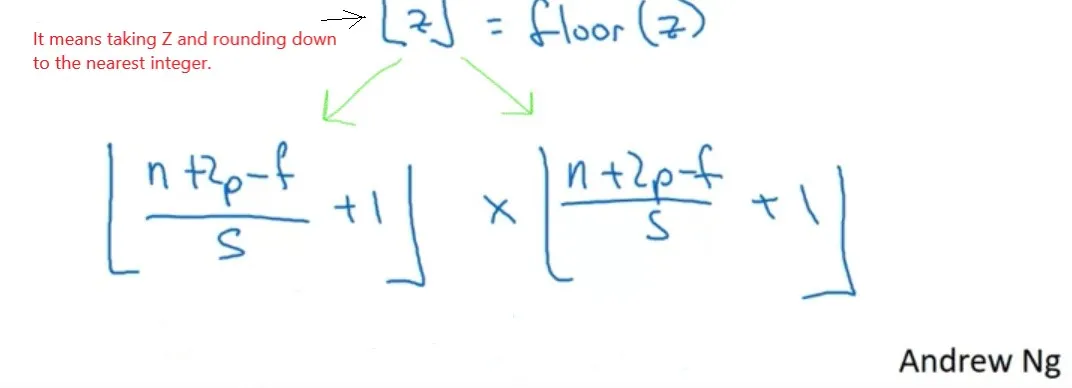 ⌊z⌋ = floor(z)
It means taking Z and rounding down
to the nearest integer.
⌊(n+2p-f)/s +1⌋ × ⌊(n+2p-f)/s +1⌋
Andrew Ng